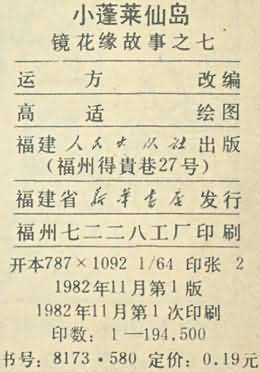 小蓬莱仙岛
镜花缘故事之七
运方 改编
高适 绘图
福建人民出版社出版
(福州得貴巷27号)
福建省新华书店发行
福州七二二八工厂印刷
开本787×1092 1/64 印张 2
1982年11月第1版
1982年11月第1次印刷
印数：1—194,500
书号：8173·580 定价：0.19元